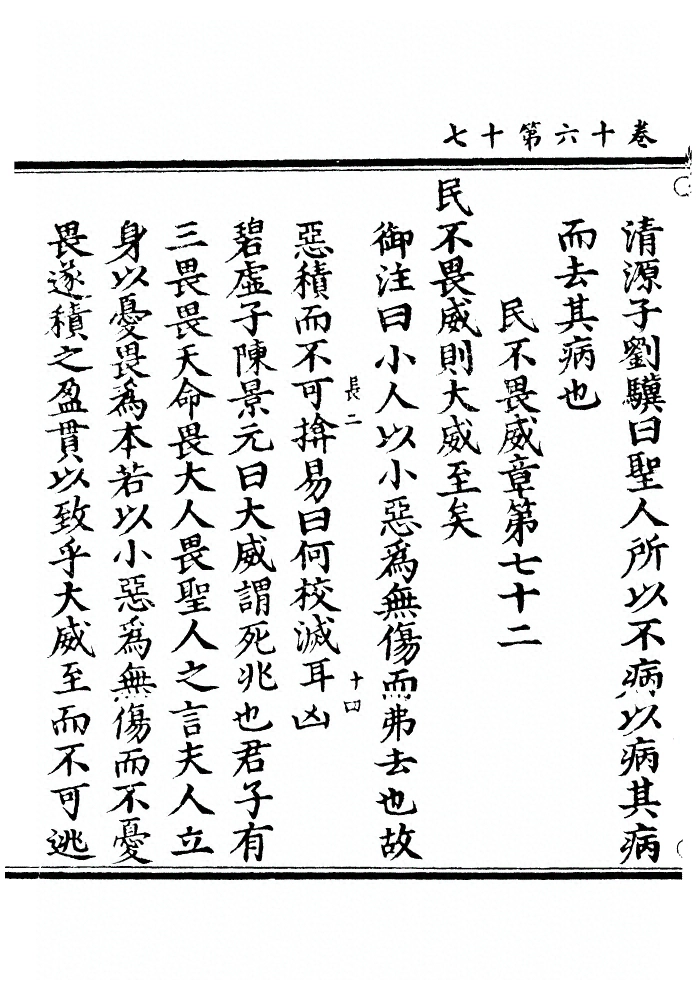 卷十六第十七
清源子劉驥曰聖人所以不病以病其病
而去其病也
民不畏威章第七十二
民不畏威則大威至矣
御注曰小人以小惡為無傷而弗去也故
長二
十四
惡積而不可揜易曰何校滅耳凶
碧虛子陳景元曰大威謂死兆也君子有
三畏畏天命畏大人畏聖人之言夫人立
身以憂畏為本若以小惡為無傷而不憂
畏遂積之盈貫以致乎大威至而不可逃